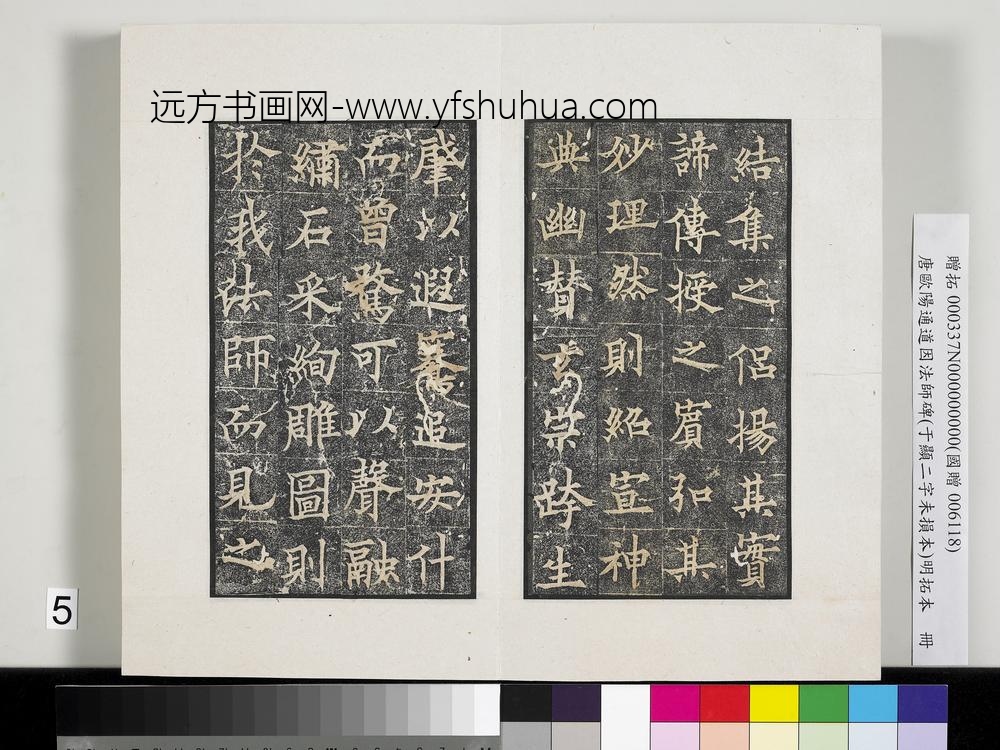 远方书画网-www.yfshuhua.com
結集之侣揚其實
諦傳授之賓弘其
妙理然則紹宣神
典幽賛玄宗跨生
肇以遐騫追安什
而曾騖可以聲融
繡石采絢雕圖則
於我法師而見之
贈拓 000337N000000000(國贈 006118)
唐歐陽通道因法師碑(于顯二字未損本)明拓本 冊
5